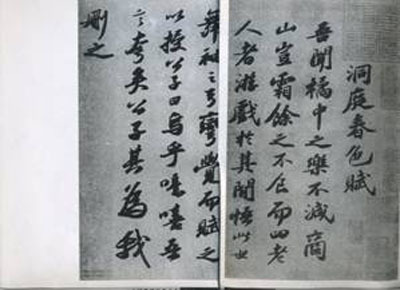 洞庭春色賦
吾聞橘中之樂不減商
山豈霜餘之不食而四老
人者游戲於其間悟此世
舞袖之弓彎覺而賦之
以授公子曰烏乎噫嘻吾
言夸矣公子其為我
刪之